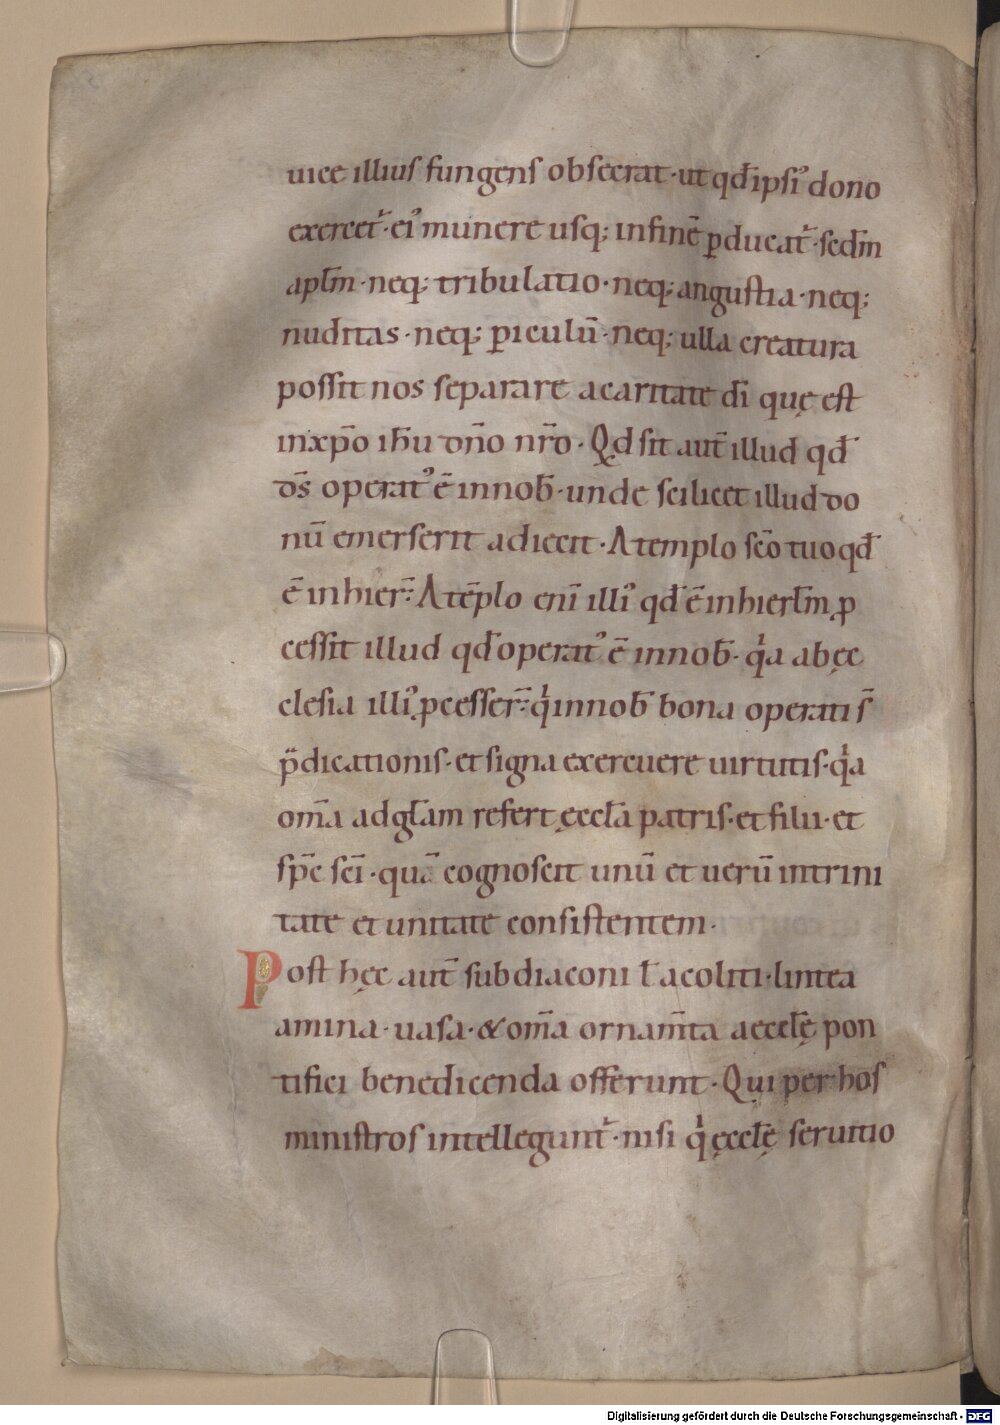 uice illius fungens obsecrat · ut qđ ipsi᾽ dono
exercet᷑ · ei᾽ munere usq; in finē ꝑducat᷑ · scdm̄
apłm · neq; tribulatio · neq; angustia · neq;
nuditas · neq; ꝑiculū · neq; ulla creatura
possit nos separare a caritate dī quę est
in xp̄o ihū dn̄o nr̄o · Qd sit aut̄ illud qđ
d̄s operat᾽ ē in nob̄ · unde scilicet illud do
nū emerserit adiecit · A templo sc̄o tuo qđ
ē in hier̄: A tēplo enī illi᾽ qđ ē in hierłm ꝓ
cessit illud qđ operat᾽ ē in nob̄ · qͥa ab ęc
clesia illi᾽ ꝓcesser̄: qͥ in nob̄ bona operati s̄
p̄dicationis · et signa exercuere uirtutis · qͥa
om̄a ad głam refert ęccła patris · et filii · et
sp̄c scī · quā cognoscit unū et uerū in trini
tate et unitate consistentem ·
Post hęc aut̄ subdiaconi ł acoliti · lintea
amina · uasa · & om̄a ornam̄ta aecclę̄ pon
tifici benedicenda offerunt · Qui per hos
ministros intellegunt᷑ · nisi qͥ ęcclę̄ seruitio
Digitalisierung gefördert durch die Deutsche Forschungsgemeinschaft - DFG